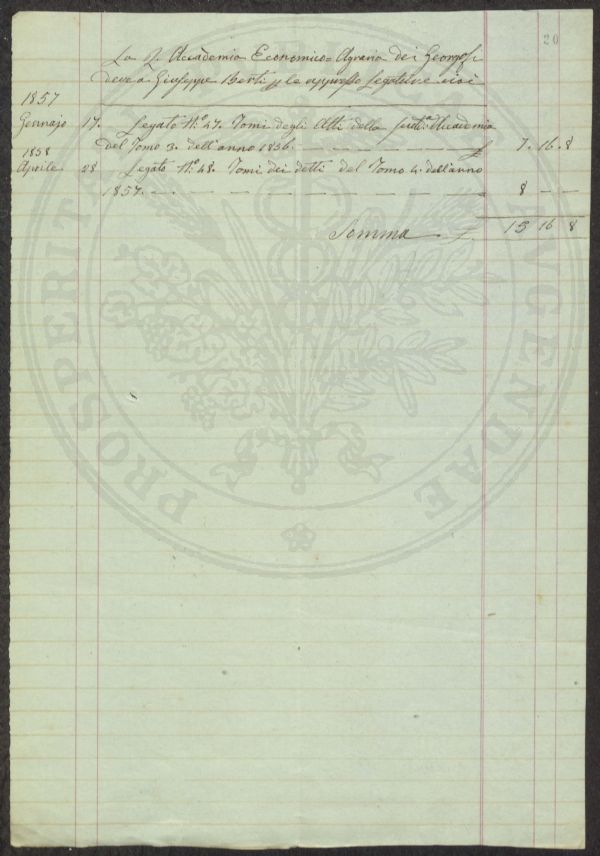 20
La R. Accademia Economico=Agraria dei Georgofi
deve a Giuseppe Berti p le appresso Legature cioè
1857
Gennajo 17. Legato N.º 47. Tomi degli Atti della sud.ª Accademia
del Tomo 3. dell'anno 1856. — — — — — — £ 7. 16. 8
1858
Aprile 28 Legato N.º 48. Tomi dei detti del Tomo 4. dell'anno
1857. — — — — — — — — — — — " 8 — —
Somma £. 15 16 8
PROSPERITATI AUGENDAE